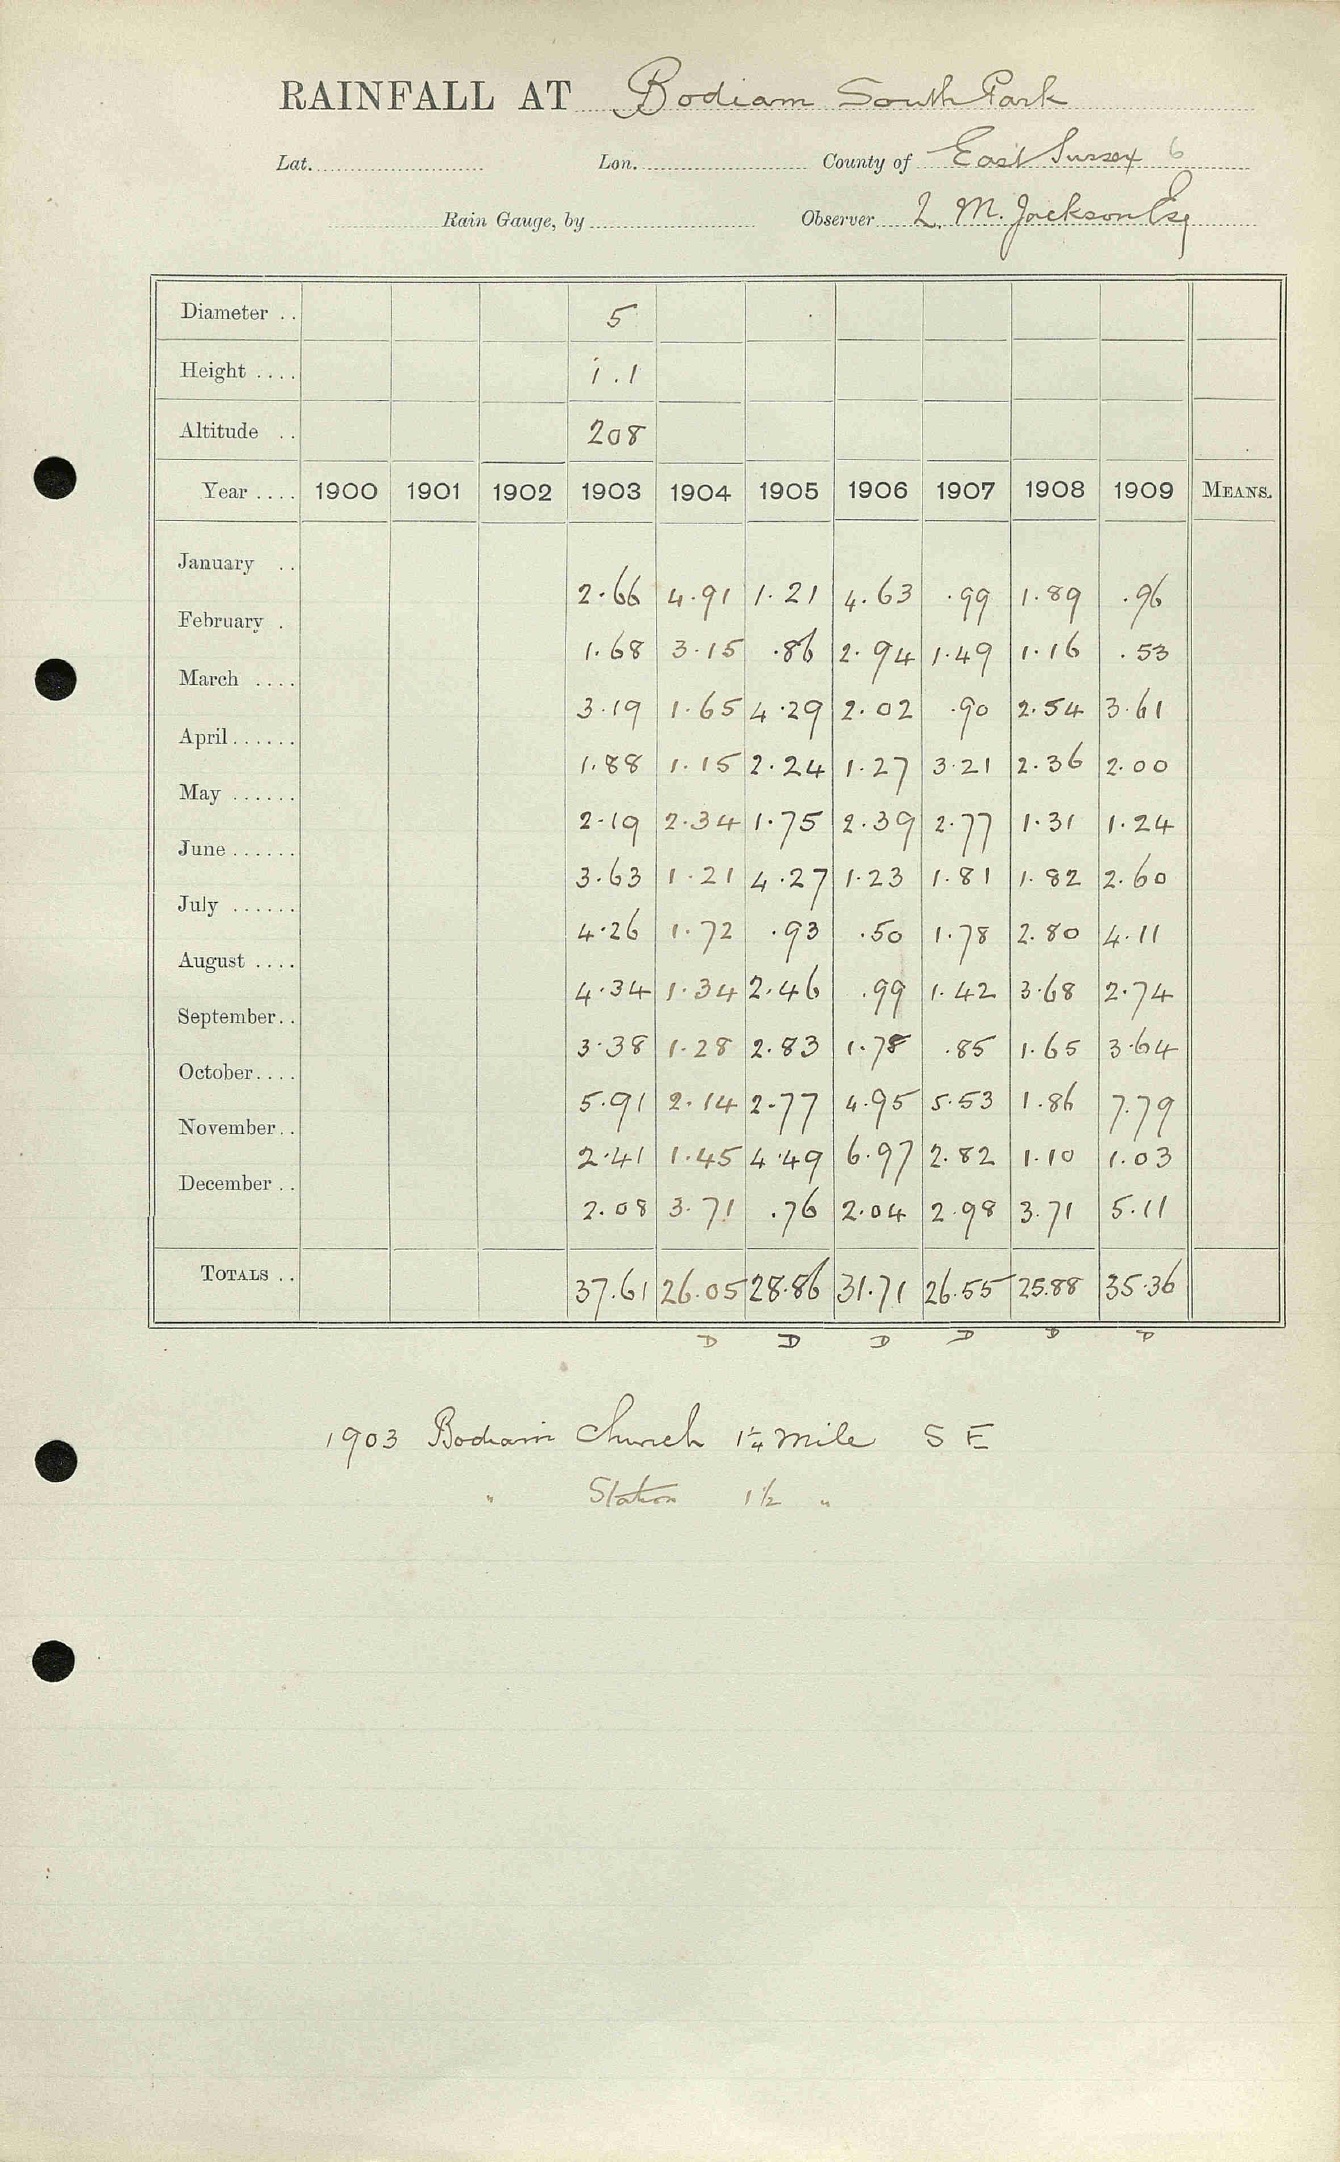 RAINFALL AT Bodiam South Park
Lat. Lon. County of East Sussex 6
Rain Gauge, by Observer L. M. Jackson Esq
Diameter .. 5
Height .... 1.1
Altitude .. 208
Year .... 1900 1901 1902 1903 1904 1905 1906 1907 1908 1909 MEANS.
January .. 2.66 4.91 1.21 4.63 .99 1.89 .96
February . 1.68 3.15 .86 2.94 1.49 1.16 .53
March .... 3.19 1.65 4.29 2.02 .90 2.54 3.61
April...... 1.88 1.15 2.24 1.27 3.21 2.36 2.00
May ...... 2.19 2.34 1.75 2.39 2.77 1.31 1.24
June...... 3.63 1.21 4.27 1.23 1.81 1.82 2.60
July ...... 4.26 1.72 .93 .50 1.78 2.80 4.11
August .... 4.34 1.34 2.46 .99 1.42 3.68 2.74
September.. 3.38 1.28 2.83 1.78 .85 1.65 3.64
October.... 5.91 2.14 2.77 4.95 5.53 1.86 7.79
November.. 2.41 1.45 4.49 6.97 2.82 1.10 1.03
December .. 2.08 3.71 .76 2.04 2.98 3.71 5.11
TOTALS .. 37.61 26.05 28.86 31.71 26.55 25.88 35.36
D D D D D D
1903 Bodiam Church 1¼ mile S E
" Station 1½ "